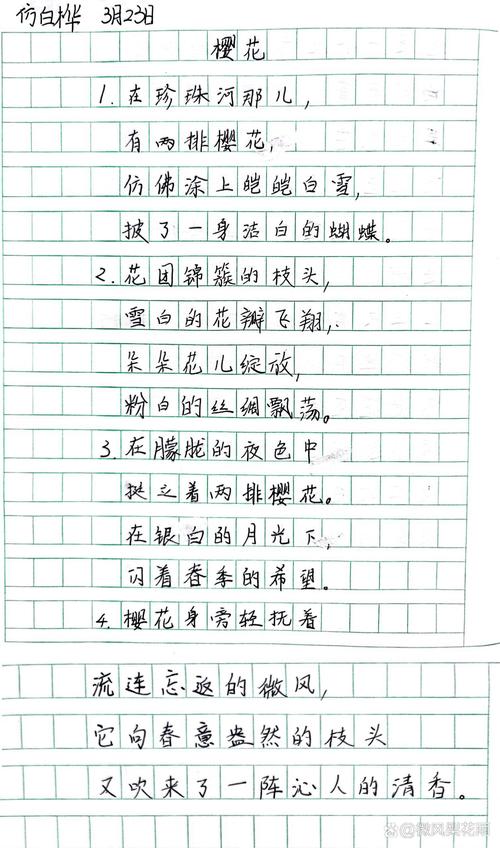 仿白桦 3月23日
樱花
1. 在珍珠河那儿，
有两排樱花，
仿佛涂上皑皑白雪，
披了一身洁白的蝴蝶。
2. 花团锦簇的枝头，
雪白的花瓣飞翔，
朵朵花儿绽放，
粉白的丝绸飘荡。
3. 在朦胧的夜色中
挺立着两排樱花。
在银白的月光下，
闪着春季的希望。
4. 樱花身旁轻抚着
流连忘返的微风，
它向春意盎然的枝头
又吹来了一阵沁人的清香。
@微风梨花雨